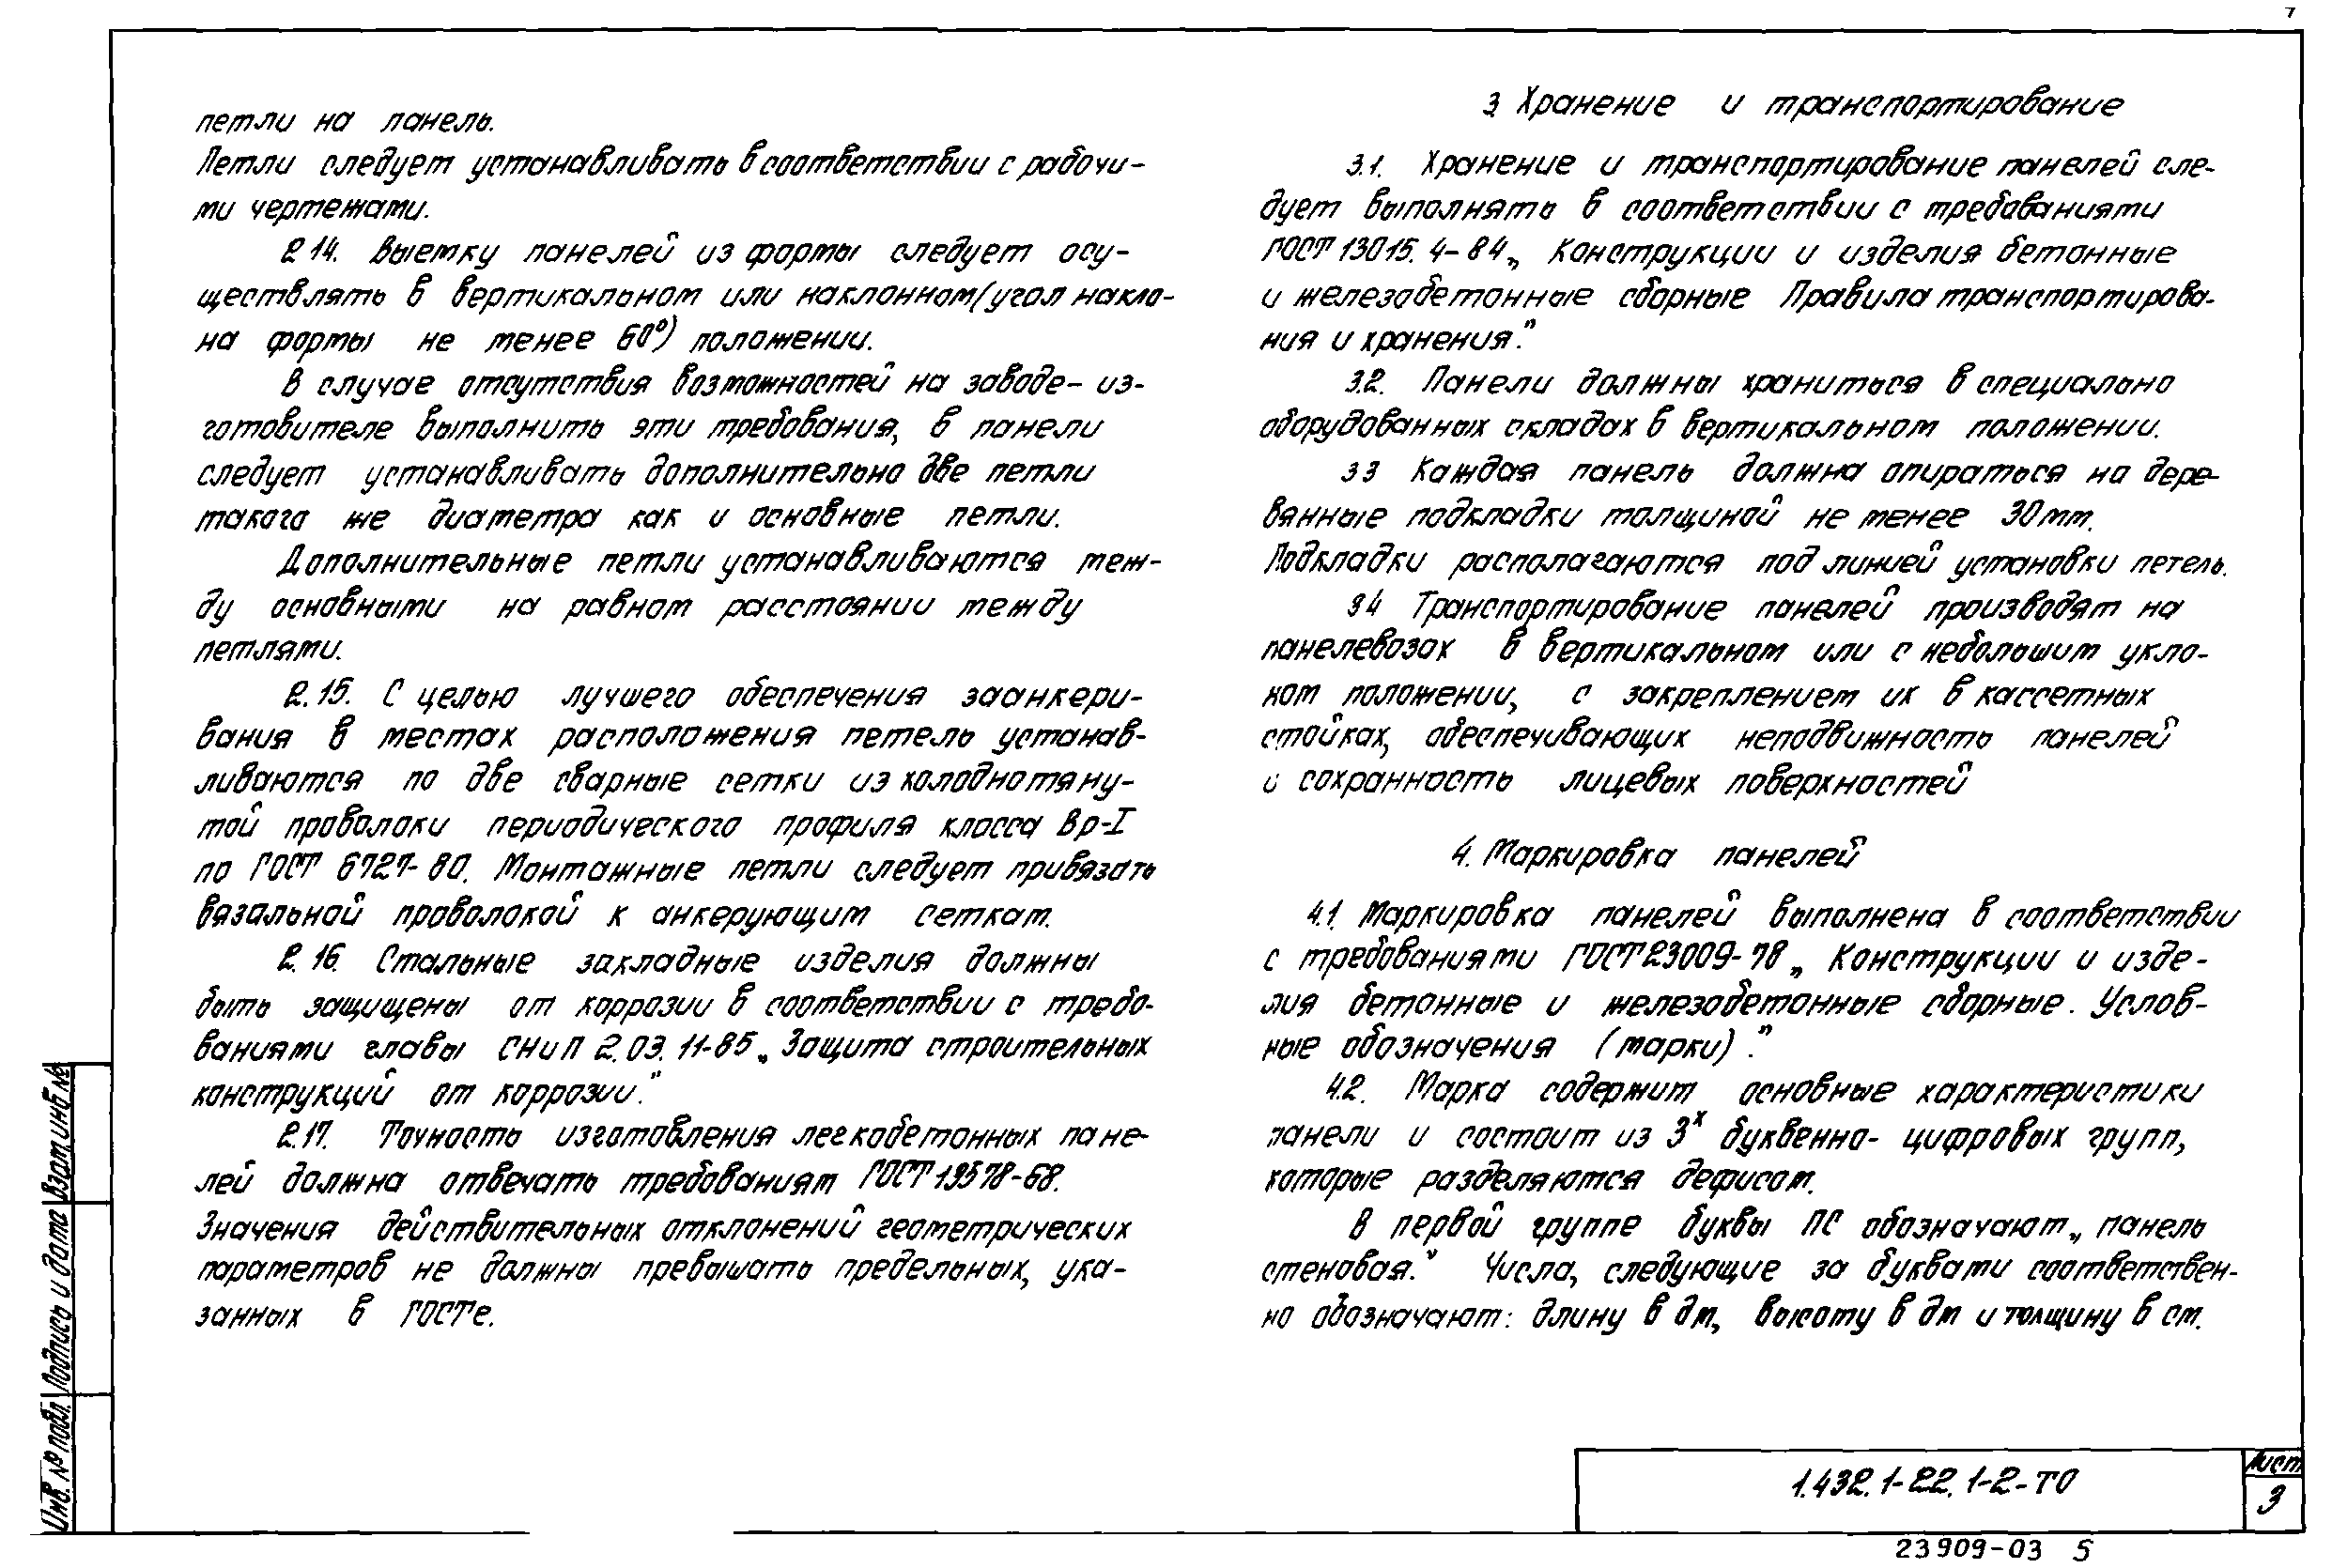 7
петли на панель.
Петли следует устанавливать в соответствии с рабочи-
ми чертежами.
2 14. Выемку панелей из формы следует осу-
ществлять в вертикальном или наклонном (угол накло-
на формы не менее 60°) положении.
В случае отсутствия возможностей на заводе- из-
готовителе выполнить эти требования, в панели
следует устанавливать дополнительно две петли
такого же диаметра как и основные петли.
Дополнительные петли устанавливаются меж-
ду основными на равном расстоянии между
петлями.
2.15. С целью лучшего обеспечения заанкери-
вания в местах расположения петель устанав-
ливаются по две сварные сетки из холоднотяну-
той проволоки периодического профиля класса Вр-I
по ГОСТ 6727-80. Монтажные петли следует привязать
вязальной проволокой к анкерующим сеткам.
2. 16. Стальные закладные изделия должны
быть защищены от коррозии в соответствии с требо-
ваниями главы СНиП 2.03. 11-85 „Защита строительных
конструкций от коррозии."
2.17. Точность изготовления легкобетонных пане-
лей должна отвечать требованиям ГОСТ 13578-68.
Значения действительных отклонений геометрических
параметров не должны превышать предельных, ука-
занных в ГОСТе.
3 Хранение и транспортирование
3.1. Хранение и транспортирование панелей сле-
дует выполнять в соответствии с требованиями
ГОСТ 13015. 4-84 „Конструкции и изделия бетонные
и железобетонные сборные Правила транспортирова-
ния и хранения."
3.2. Панели должны храниться в специально
оборудованных складах в вертикальном положении.
3 3 Каждая панель должна опираться на дере-
вянные подкладки толщиной не менее 30 мм.
Подкладки располагаются под линией установки петель.
3 4 Транспортирование панелей производят на
панелевозах в вертикальном или с небольшим укло-
ном положении, с закреплением их в кассетных
стойках, обеспечивающих неподвижность панелей
и сохранность лицевых поверхностей
4. Маркировка панелей
4.1 Маркировка панелей выполнена в соответствии
с требованиями ГОСТ 23009-78 „Конструкции и изде-
лия бетонные и железобетонные сборные. Услов-
ные обозначения (марки)."
4.2. Марка содержит основные характеристики
панели и состоит из 3х буквенно- цифровых групп,
которые разделяются дефисом.
В первой группе буквы ПС обозначают „панель
стеновая." Числа, следующие за буквами соответствен-
но обозначают: длину в дм, высоту в дм и толщину в см.
Инв. № подл. Подпись и дата Взам инв №
1.432.1-22.1-2-ТО
Лист
3
23909-03 5